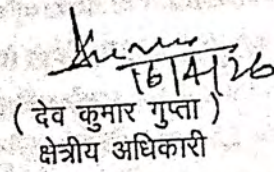 16/4/26
( देव कुमार गुप्ता )
क्षेत्रीय अधिकारी